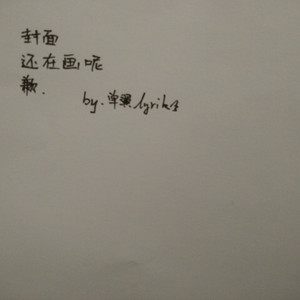 封面
还在画呢
歉.
by.单翼.lyrik